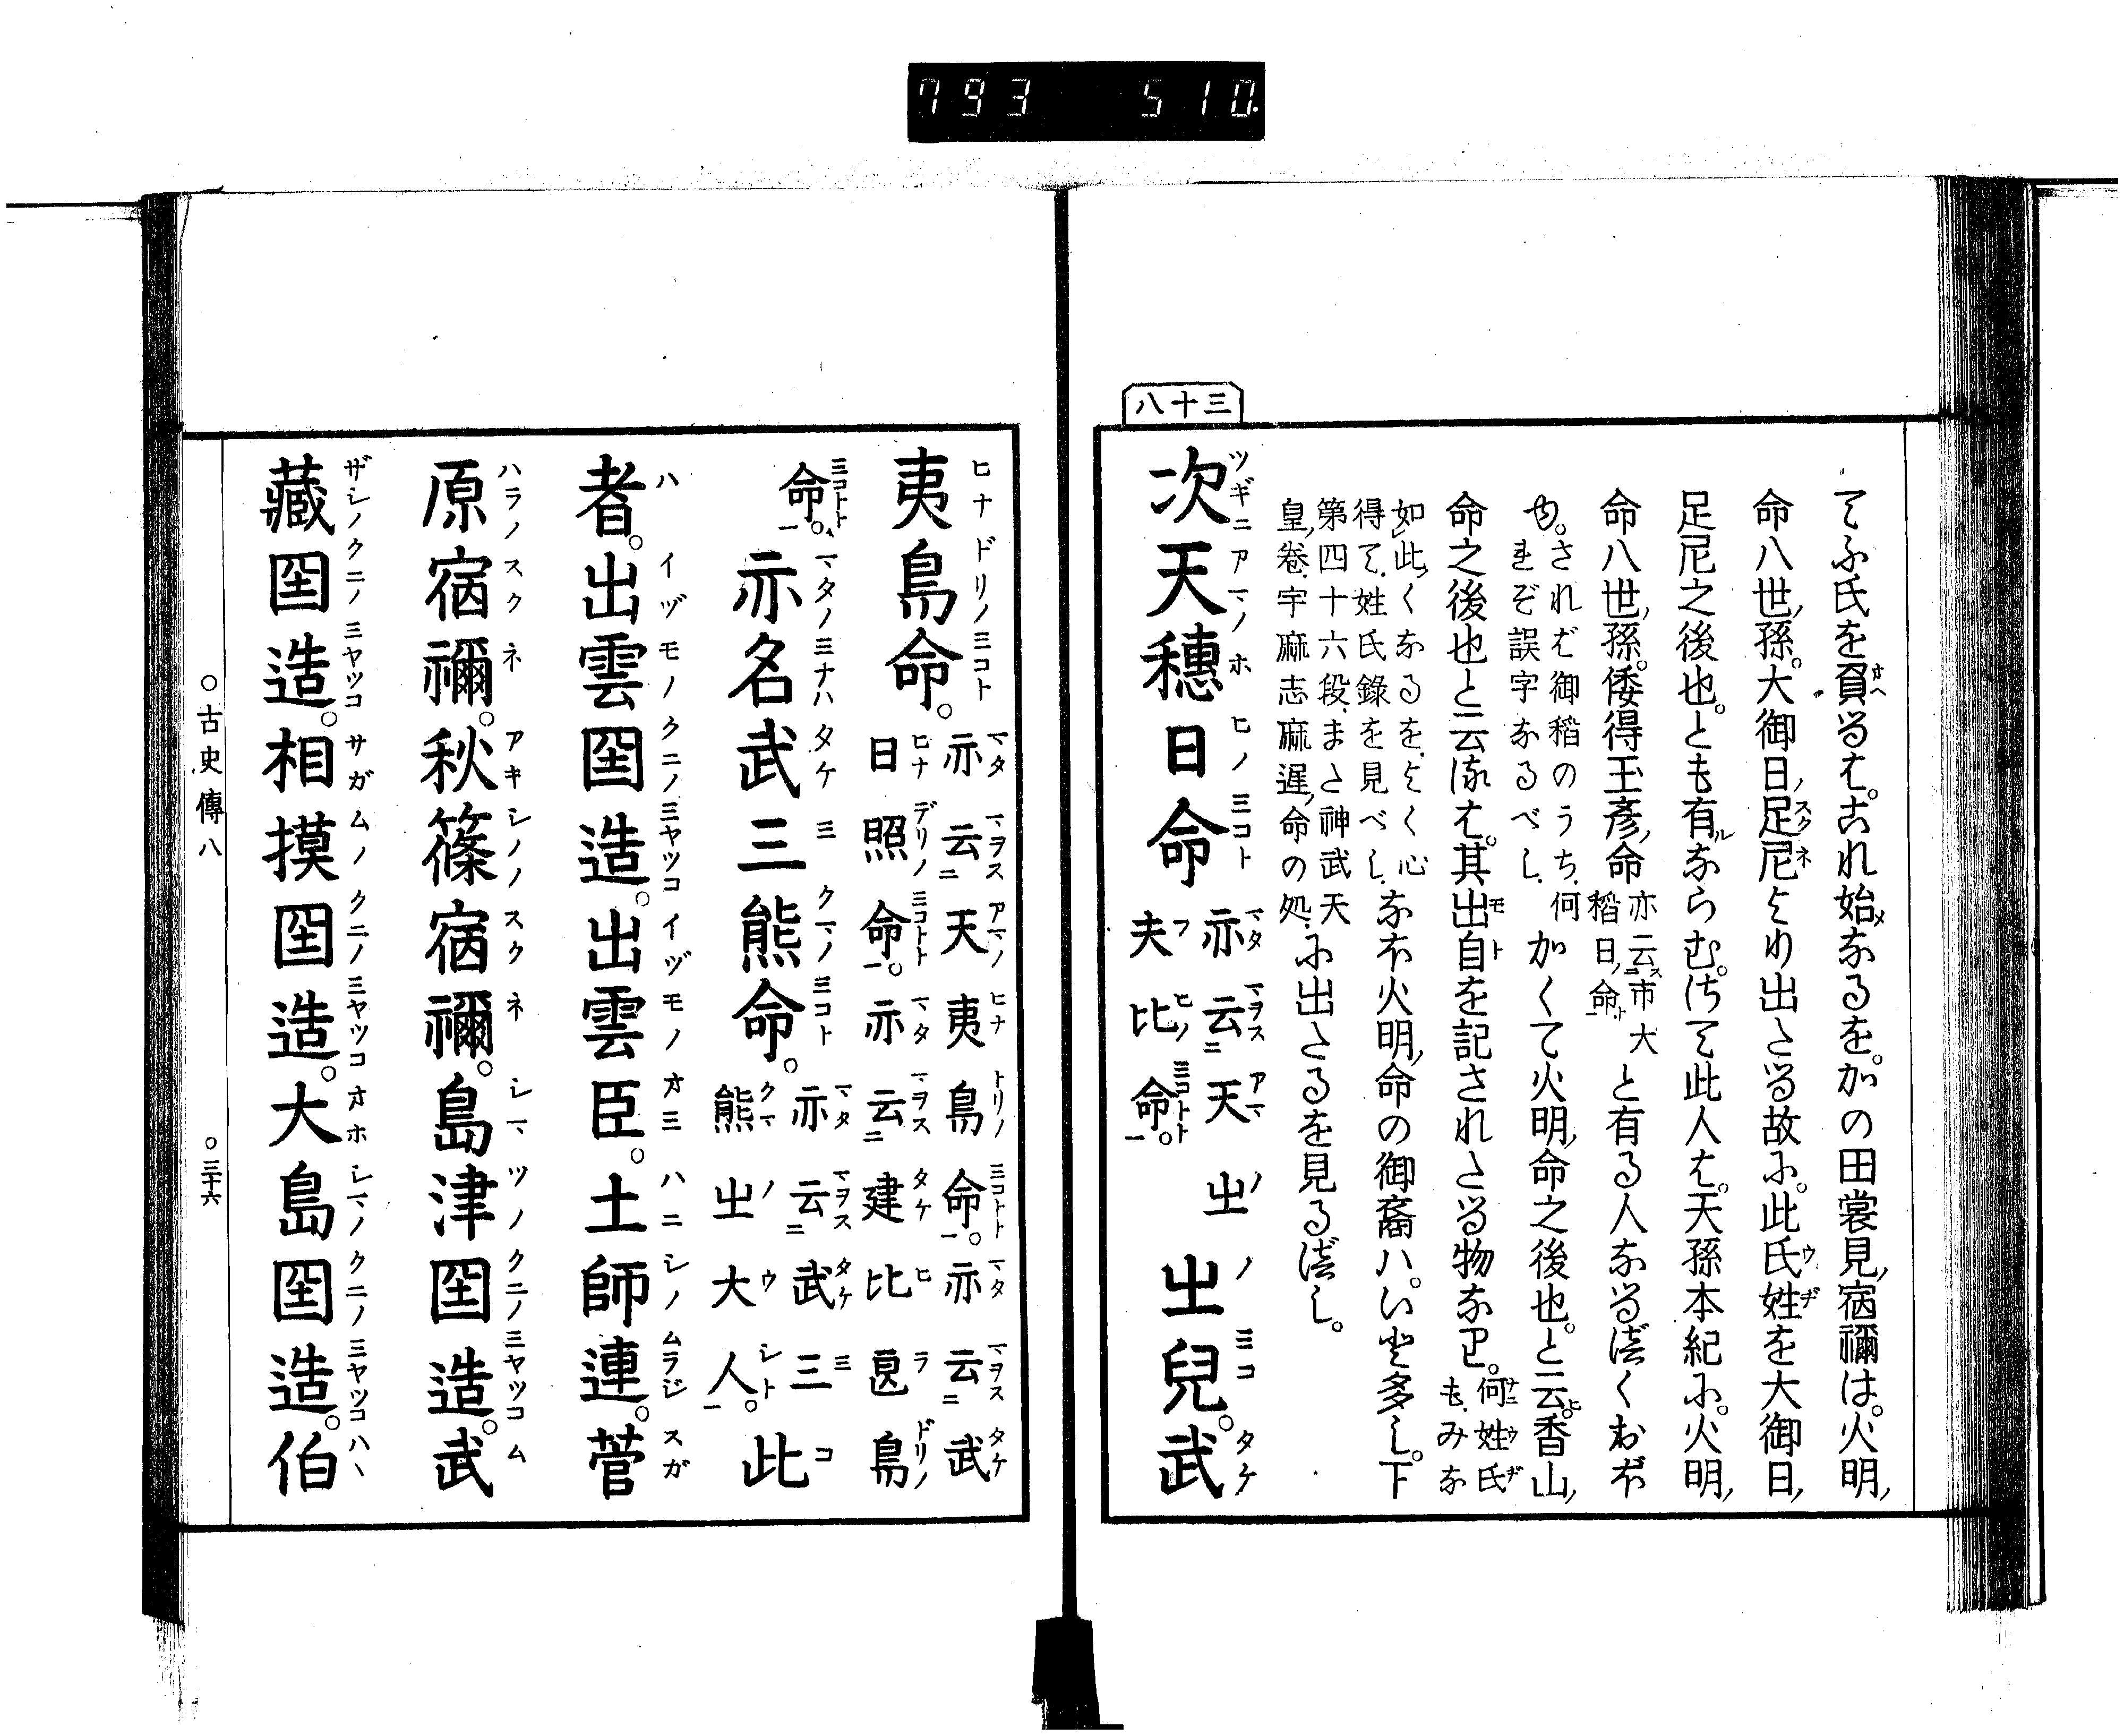 793 510
てふ氏を負るは。古れ始なるを。かの田裳見宿禰は。火明
命八世孫。大御日足尼より出たる故に。此氏姓を大御日
足尼之後也。とも有ならむ。さて此人は。天孫本紀に。火明
命八世孫。倭得玉彦命亦云市大稻日命と有る人なるべくおぼ
ゆ。されば御稻のうち、何まれぞ誤字なるべし、かくて火明命之後也。と云。香山
命之後也と云るは。其出自を記されたる物なり。何姓氏も、みな
如此くなるを、よく心得て、姓氏錄を見べし、なほ火明命の御裔ハ。いと多し。下
第四十六段、また神武天皇卷、宇麻志麻遲命の処、に出たるを見るべし。
三十八
次天穗日命亦云天之夫比命。之出之兒。武
夷鳥命。亦云天夷鳥命。亦云武日照命。亦云建比良鳥
命。亦名武三熊命。亦云武三熊之大人。此
者。出雲国造。出雲臣。土師連。菅
原宿禰。秋篠宿禰。島津国造。武
藏国造。相摸国造。大島国造。伯
○古史傳八 ○三十六